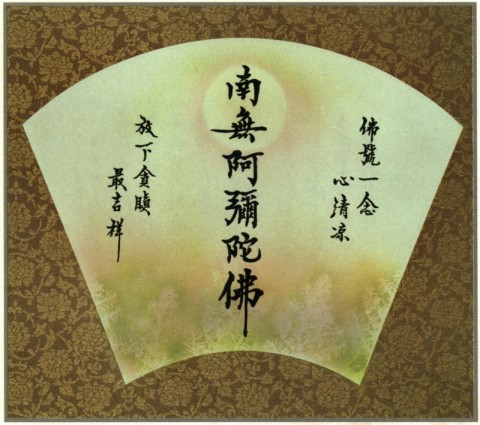 佛號一念
心清凉
南無阿彌陀佛
放下貪瞋
最吉祥